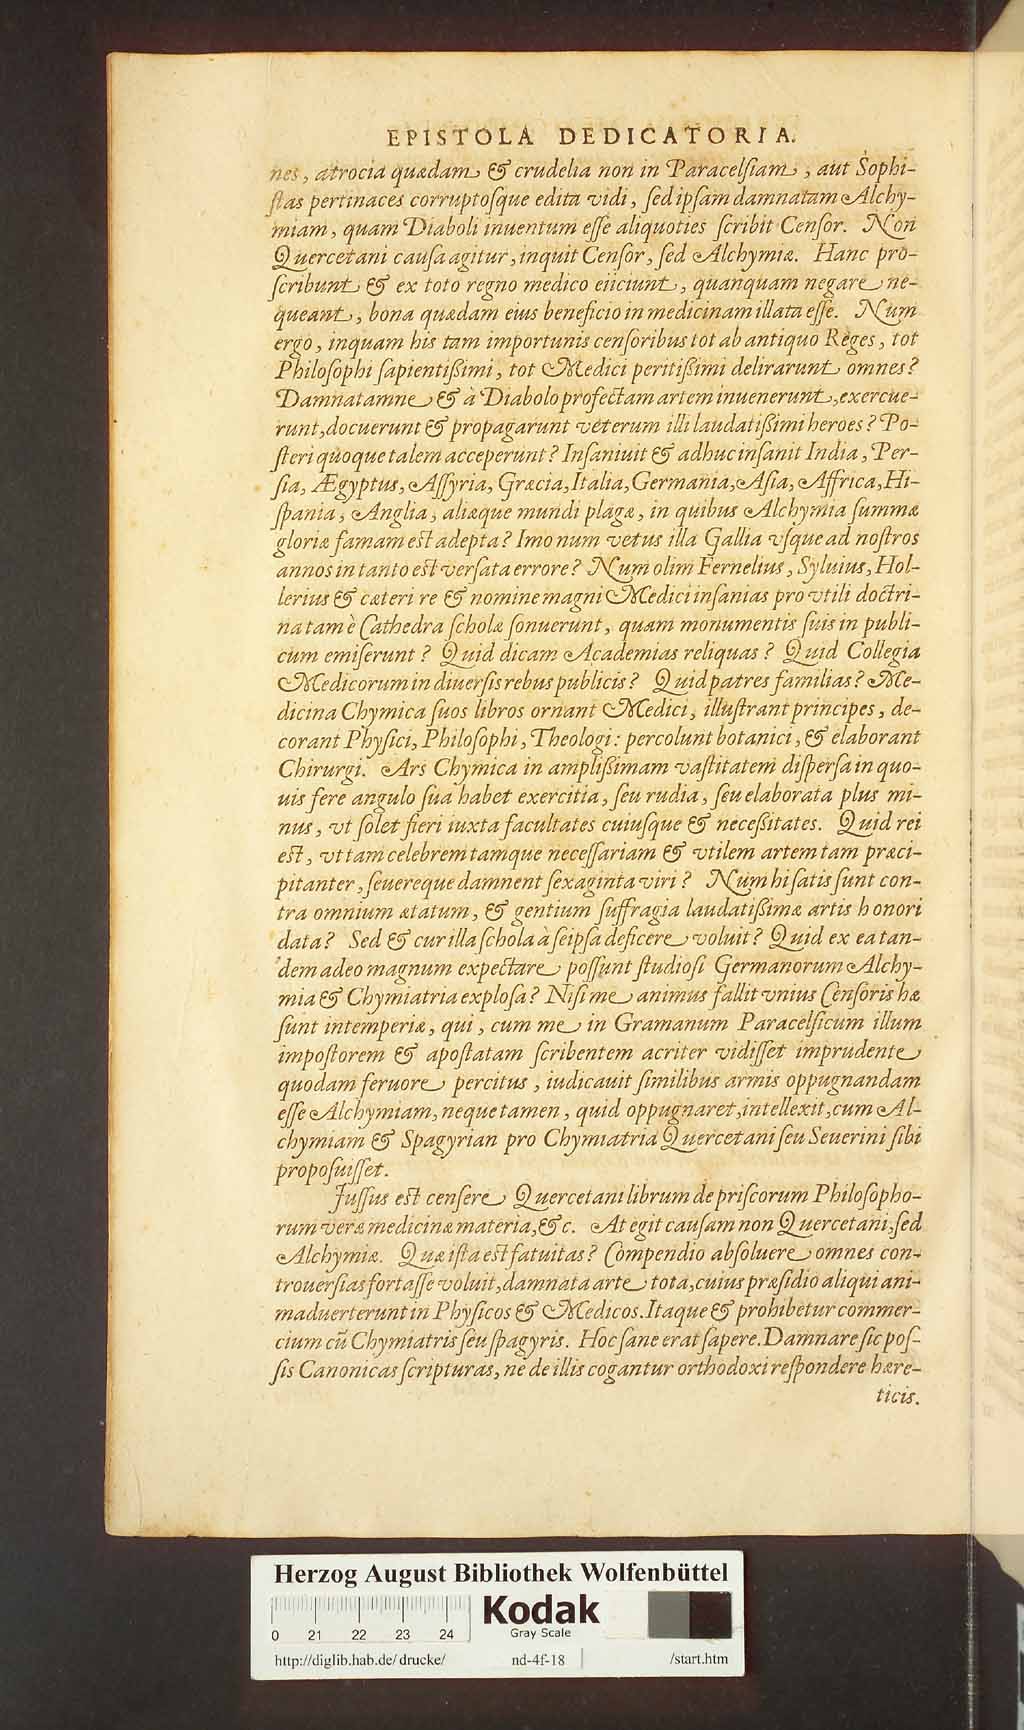 EPISTOLA DEDICATORIA.
nes, atrocia quædam & crudelia non in Paracelſiam, aut Sophi-
ſtas pertinaces corruptoſque edita vidi, ſed ipſam damnatam Alchy-
miam, quam Diaboli inuentum eſſe aliquoties ſcribit Cenſor. Non
Quercetani cauſa agitur, inquit Cenſor, ſed Alchymiæ. Hanc pro-
ſcribunt & ex toto regno medico eiiciunt, quanquam negare ne-
queant, bona quædam eius beneficio in medicinam illata eſſe. Num
ergo, inquam his tam importunis cenſoribus tot ab antiquo Reges, tot
Philoſophi ſapientißimi, tot Medici peritißimi delirarunt omnes?
Damnatamne & à Diabolo profectam artem inuenerunt, exercue-
runt, docuerunt & propagarunt veterum illi laudatißimi heroes? Po-
ſteri quoque talem acceperunt? Inſaniuit & adhuc inſanit India, Per-
ſia, Ægyptus, Aſſyria, Græcia, Italia, Germania, Aſia, Affrica, Hi-
ſpania, Anglia, aliæque mundi plagæ, in quibus Alchymia ſummæ
gloriæ famam eſt adepta? Imo num vetus illa Gallia vſque ad noſtros
annos in tanto eſt verſata errore? Num olim Fernelius, Syluius, Hol-
lerius & cæteri re & nomine magni Medici inſanias pro vtili doctri-
na tam è Cathedra ſcholæ ſonuerunt, quam monumentis ſuis in publi-
cum emiſerunt? Quid dicam Academias reliquas? Quid Collegia
Medicorum in diuerſis rebus publicis? Quid patres familias? Me-
dicina Chymica ſuos libros ornant Medici, illuſtrant principes, de-
corant Phyſici, Philoſophi, Theologi: percolunt botanici, & elaborant
Chirurgi. Ars Chymica in amplißimam vaſtitatem diſperſa in quo-
uis fere angulo ſua habet exercitia, ſeu rudia, ſeu elaborata plus mi-
nus, vt ſolet fieri iuxta facultates cuiuſque & neceßitates. Quid rei
eſt, vt tam celebrem tamque neceſſariam & vtilem artem tam præci-
pitanter, ſeuereque damnent ſexaginta viri? Num hi ſatis ſunt con-
tra omnium ætatum, & gentium ſuffragia laudatißimæ artis honori
data? Sed & cur illa ſchola à ſeipſa deficere voluit? Quid ex ea tan-
dem adeo magnum expectare poſſunt ſtudioſi Germanorum Alchy-
mia & Chymiatria exploſa? Niſi me animus fallit vnius Cenſoris hæ
ſunt intemperiæ, qui, cum me in Gramanum Paracelſicum illum
impoſtorem & apoſtatam ſcribentem acriter vidiſſet imprudente
quodam feruore percitus, iudicauit ſimilibus armis oppugnandam
eſſe Alchymiam, neque tamen, quid oppugnaret, intellexit, cum Al-
chymiam & Spagyrian pro Chymiatria Quercetani ſeu Seuerini ſibi
propoſuiſſet.
Juſſus eſt cenſere Quercetani librum de priſcorum Philoſopho-
rum veræ medicinæ materia, &c. At egit cauſam non Quercetani, ſed
Alchymiæ. Quæ iſta eſt fatuitas? Compendio abſoluere omnes con-
trouerſias fortaſſe voluit, damnata arte tota, cuius præſidio aliqui ani-
maduerterunt in Phyſicos & Medicos. Itaque & prohibetur commer-
cium cũ Chymiatris ſeu ſpagyris. Hoc ſane erat ſapere. Damnare ſic poſ-
ſis Canonicas ſcripturas, ne de illis cogantur orthodoxi reſpondere hære-
ticis.
Herzog August Bibliothek Wolfenbüttel
Kodak
Gray Scale
0 21 22 23 24
http://diglib.hab.de/drucke/ nd-4f-18 /start.htm